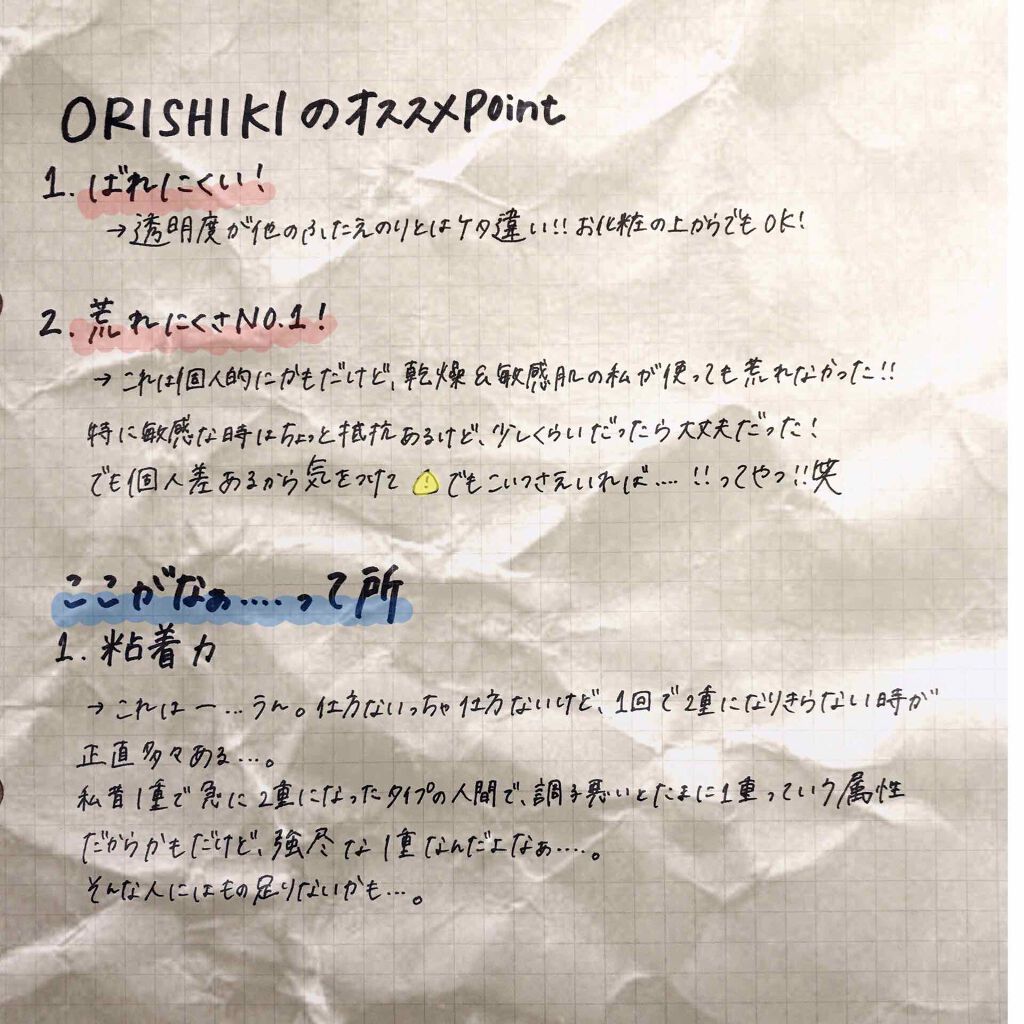 ORISHIKIのオススメPoint
1. ばれにくい!
→透明度が他のふたえのりとはケタ違い!!お化粧の上からでもOK!
2. 荒れにくさNO.1!
→これは個人的にかもだけど、乾燥&敏感肌の私が使っても荒れなかった!!
特に敏感な時はちょっと抵抗あるけど、少しくらいだったら大丈夫だった!
でも個人差あるから気をつけて⚠でもこいつさえいれば....!!ってやつ!!笑
ここがなぁ....って所
1. 粘着力
→これはー...うん。仕方ないっちゃ仕方ないけど、1回で2重になりきらない時が
正直多々ある...。
私昔1重で急に2重になったタイプの人間で、調子悪いとたまに1重っていう属性
だからかもだけど、強尽な1重なんだよなぁ....。
そんな人にはもの足りないかも...。